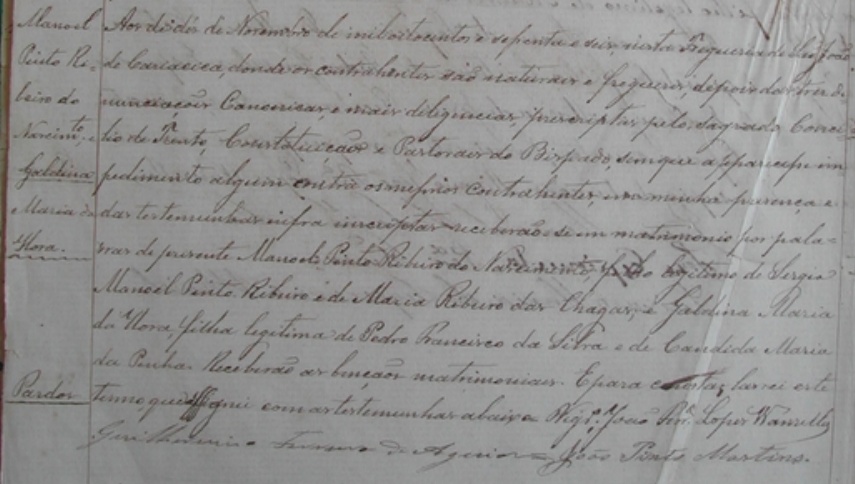 Manoel
Pinto Ri-
beiro do
Nascimto. e
Galdina
Maria da
Hora.
Pardos
Aos dezdes de Novembro de mil oitocentos e septenta e seis, nesta Freguezia de São João
de Cariacica, donde os contrahentes são naturais e freguezes, depois das tres de-
nunciações Canonicas, e mais diligencias, prescriptas pelo sagrado Conci-
lio de Trento, Constituições e Pastoraes do Bispado, sem que apparecesse im
pedimento algum contra os mesmos contrahentes, em minha presença e
das testemunhas infra inscriptas receberão-se em matrimonio por pala-
vras de presente Manoel Pinto Ribeiro do Nascimento, filho legitimo de Sergio
Manoel Pinto Ribeiro e de Maria Ribeiro das Chagas, e Galdina Maria
da Hora, filha legitima de Pedro Francisco da Silva e de Candida Maria
da Penha. Receberão as bençãos matrimoniaes. E para constar, lavrei este
termo, que assignei com as testemunhas abaixo Vigro. João Lopes Wanzeller
Guilhermino de Aguiar João Pinto Martins.